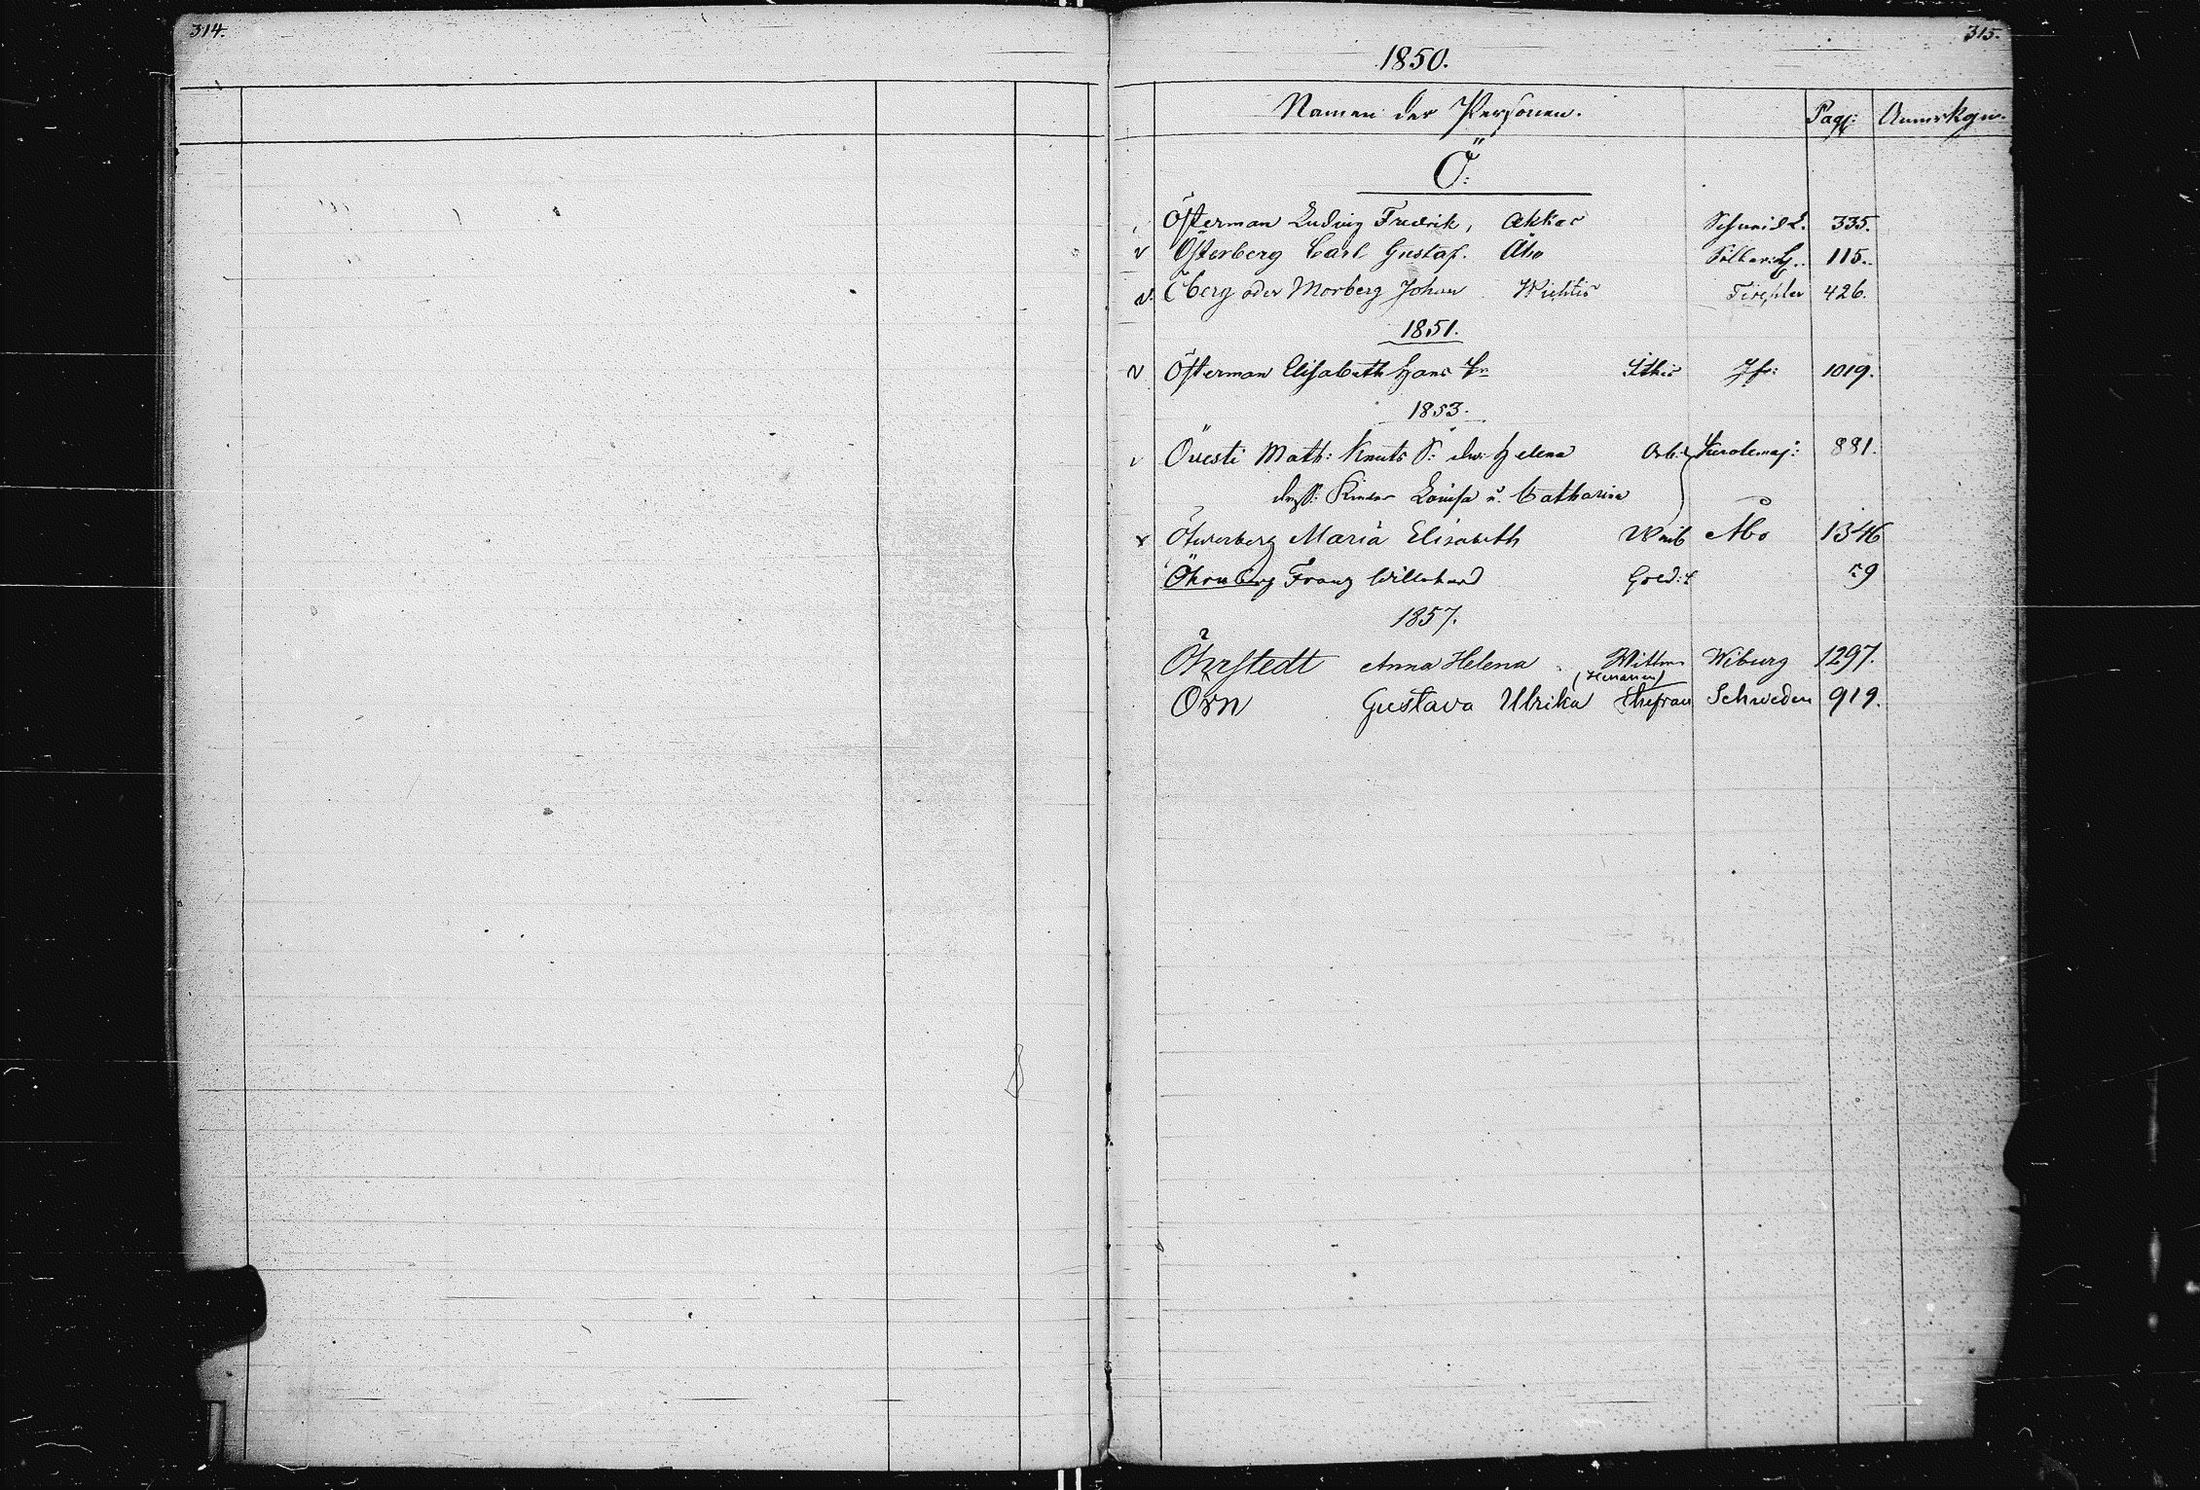 314.
315.
1850.
Namen der Personen. Pagg: Anmerkgn.
Ö:
Österman Ludvig Fredrik, Akkas Schmidt. 335.
v Österberg Carl Gustaf. Åbo 115.
v. Öberg oder Morberg Johan Wichtis Tischler 426.
1851.
v Österman Elisabeth Hans Sithis Jfr: 1019.
1853.
v Övesti Math: Knuts S: Helena Arb: 881.
dess: Kinder Lovisa u. Catharina
v Maria Elisabeth Weib Åbo 1346
Öhrnberg Franz Willehard Gold: 79
1857.
Öhrstedt Anna Helena Wittwe Wiburg 1297.
Örn Gustava Ulrika Ehefrau Schweden 919.